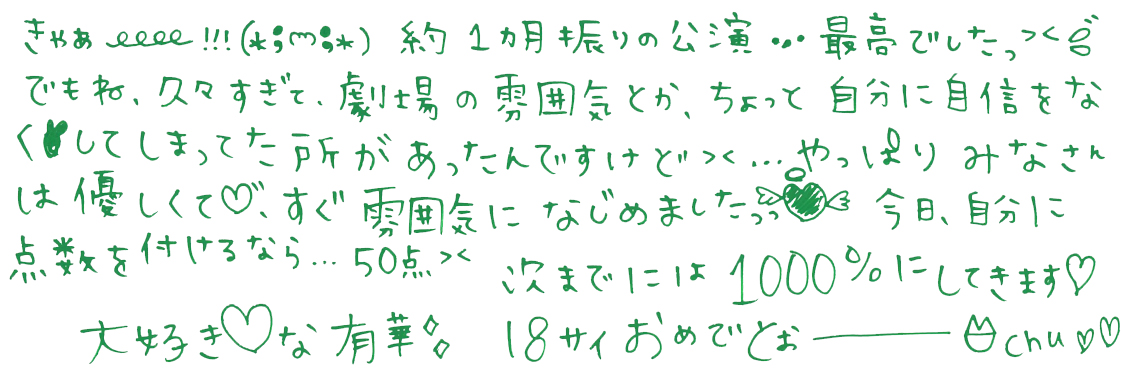 きゃぁℓℓℓℓ!!!(*;∩;*) 約1カ月振りの公演…最高でしたっ><
でもね、久々すぎて、劇場の雰囲気とか、ちょっと自分に自信をな
くしてしまってた所があったんですけど><…やっぱりみなさん
は優しくて♡、すぐ雰囲気になじめましたっっ 今日、自分に
点数を付けるなら…50点>< 次までには1000%にしてきます♡
大好き♡な有華 18サイおめでとぉ―――chu♡♡